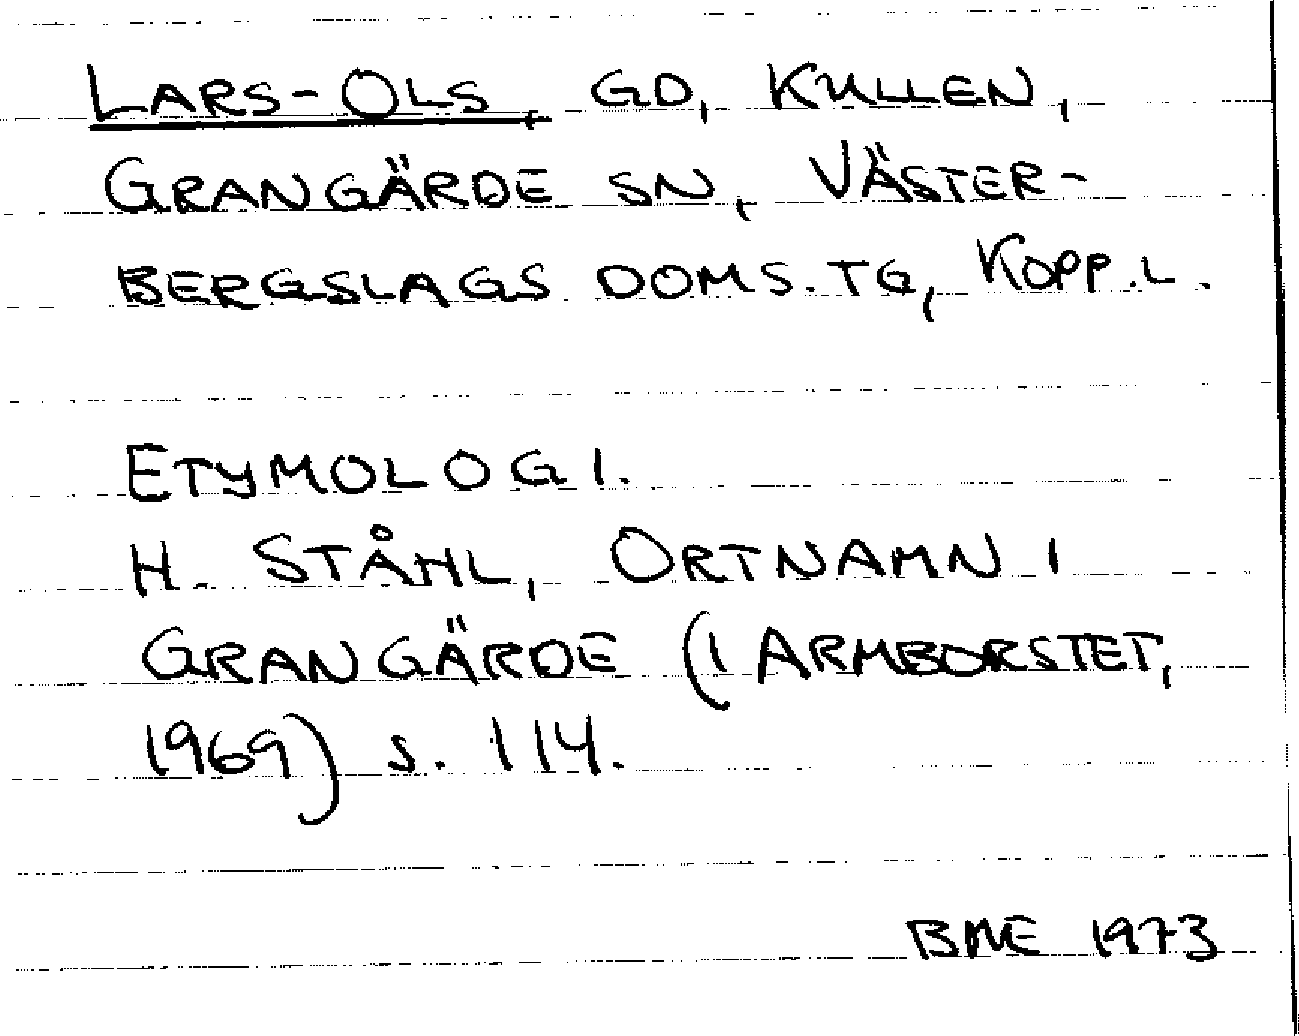 LARS-OLS, GD, KULLEN,
GRANGÄRDE SN, VÄSTER-
BERGSLAGS DOMS.TG, KOPP.L.
ETYMOLOGI.
H. STÅHL, ORTNAMN I
GRANGÄRDE (I ARMBORSTET,
1969) S. 114.
BME 1973